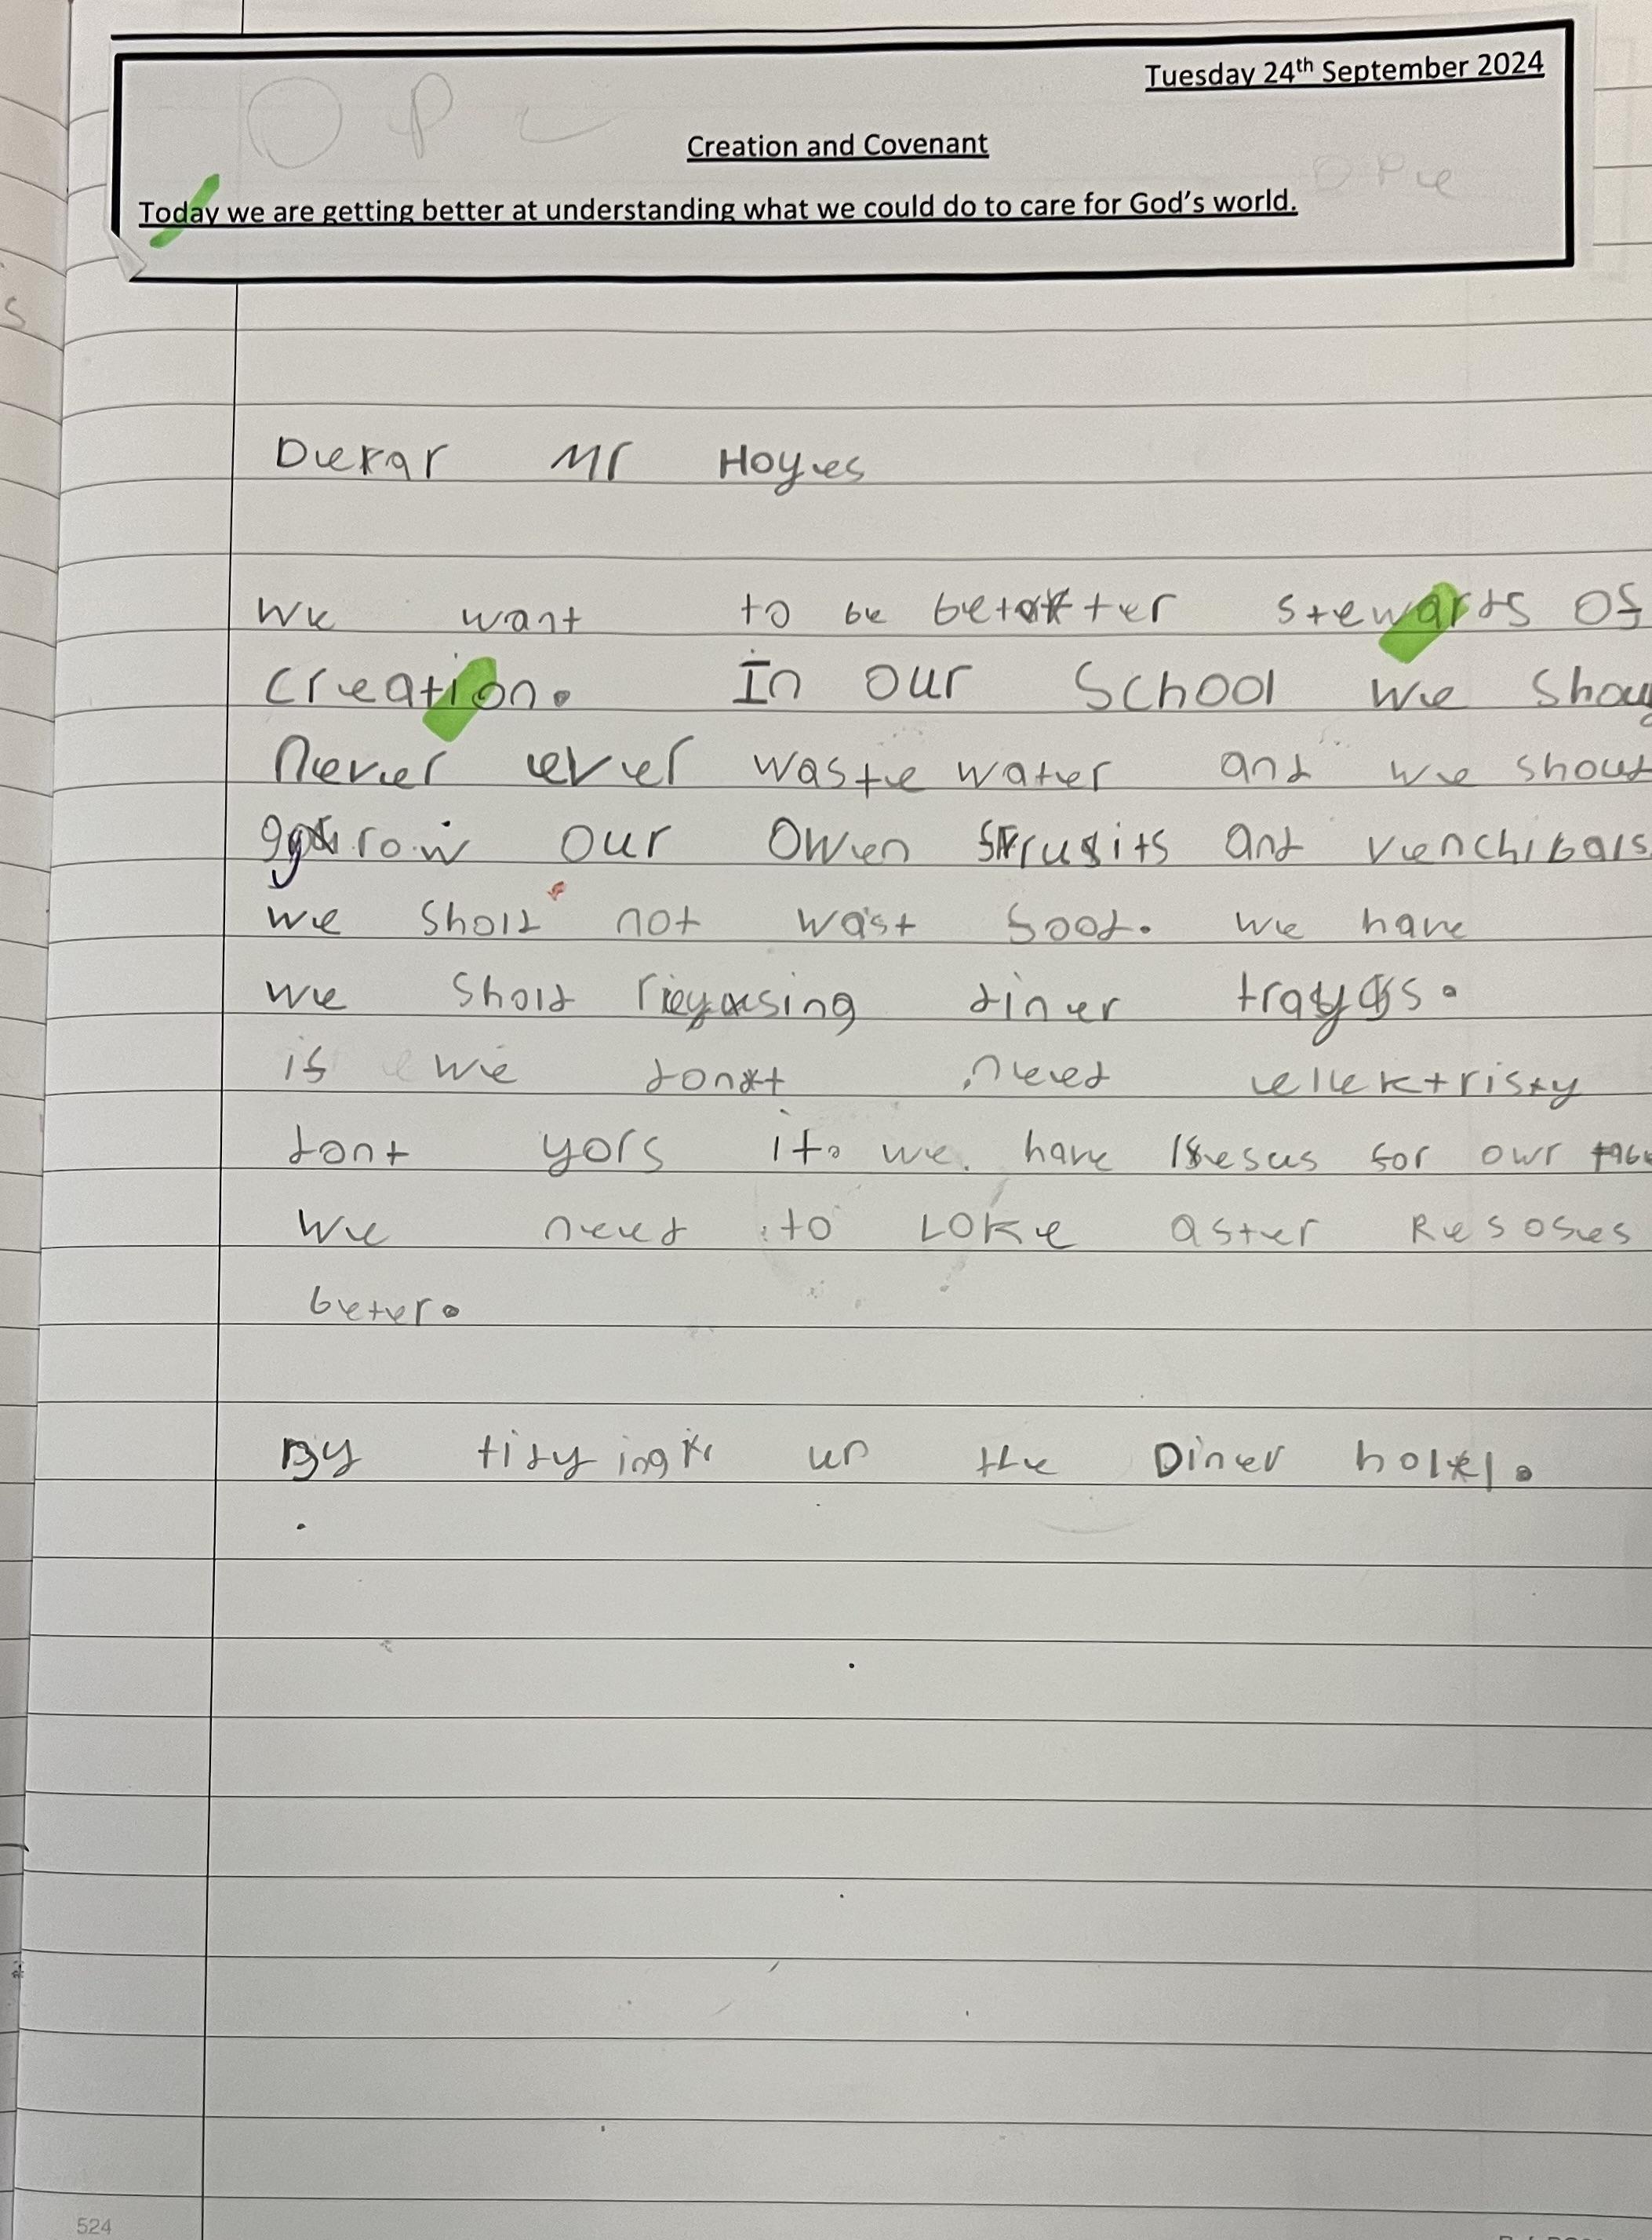 Tuesday 24th September 2024
Creation and Covenant
Today we are getting better at understanding what we could do to care for God's world.
Dear Mr Hoyes
we want to be better stewards of
creation. In our School we
never ever waste water and we
grow our owen fruits and venchibals
we shold not wast food. we have
we shold reyusing diner trays.
if we dont need elektristy
dont yors it. we have for owr
we need to Loke after Resoses
beter.
By tidying up the Diner holl.
524